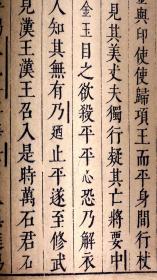 金與印使使歸項王而平身間行杖
見其美丈夫獨行疑其亡將要中
金玉目之欲殺平平心恐乃解衣
人知其無有乃迺止平遂至修武
見漢王漢王召入是時萬石君石